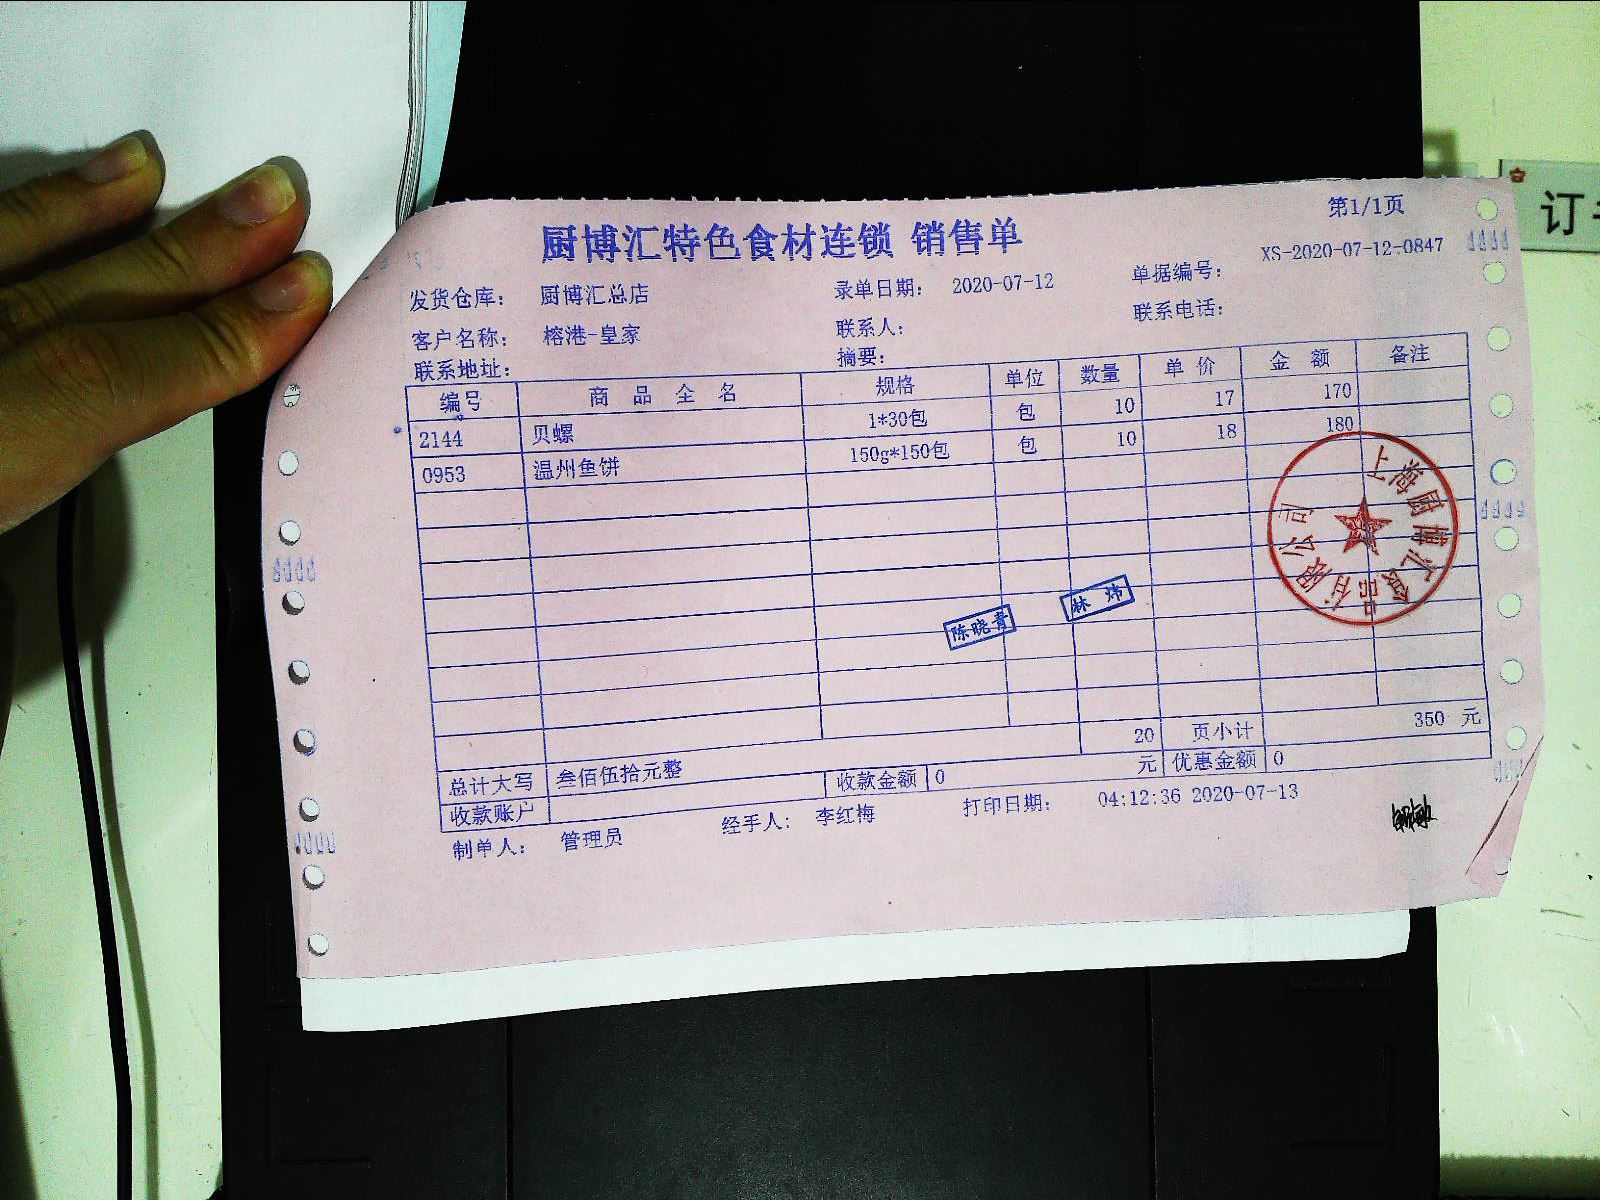 第1/1页
厨博汇特色食材连锁 销售单
发货仓库： 厨博汇总店 录单日期： 2020-07-12 单据编号： XS-2020-07-12-0847
客户名称： 榕港-皇家 联系人： 联系电话：
联系地址： 摘要：
编号 商品全名 规格 单位 数量 单价 金额 备注
2144 贝螺 1*30包 包 10 17 170
0953 温州鱼饼 150g*150包 包 10 18 180
上海厨博汇食品有限公司
陈晓青 林炜
20 页小计 350 元
总计大写 叁佰伍拾元整 收款金额 0 元 优惠金额 0
收款账户
制单人： 管理员 经手人： 李红梅 打印日期： 04:12:36 2020-07-13
订